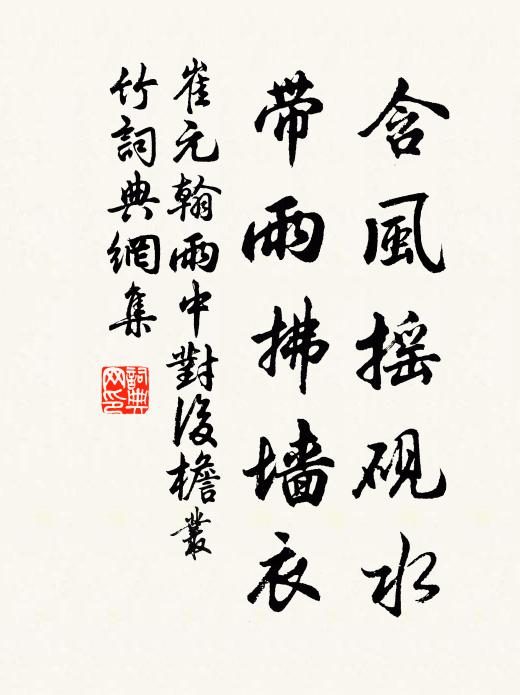 含風摇硯水
带雨拂墙衣
崔元翰雨中對後檐叢
竹詞典網集
詞典网印